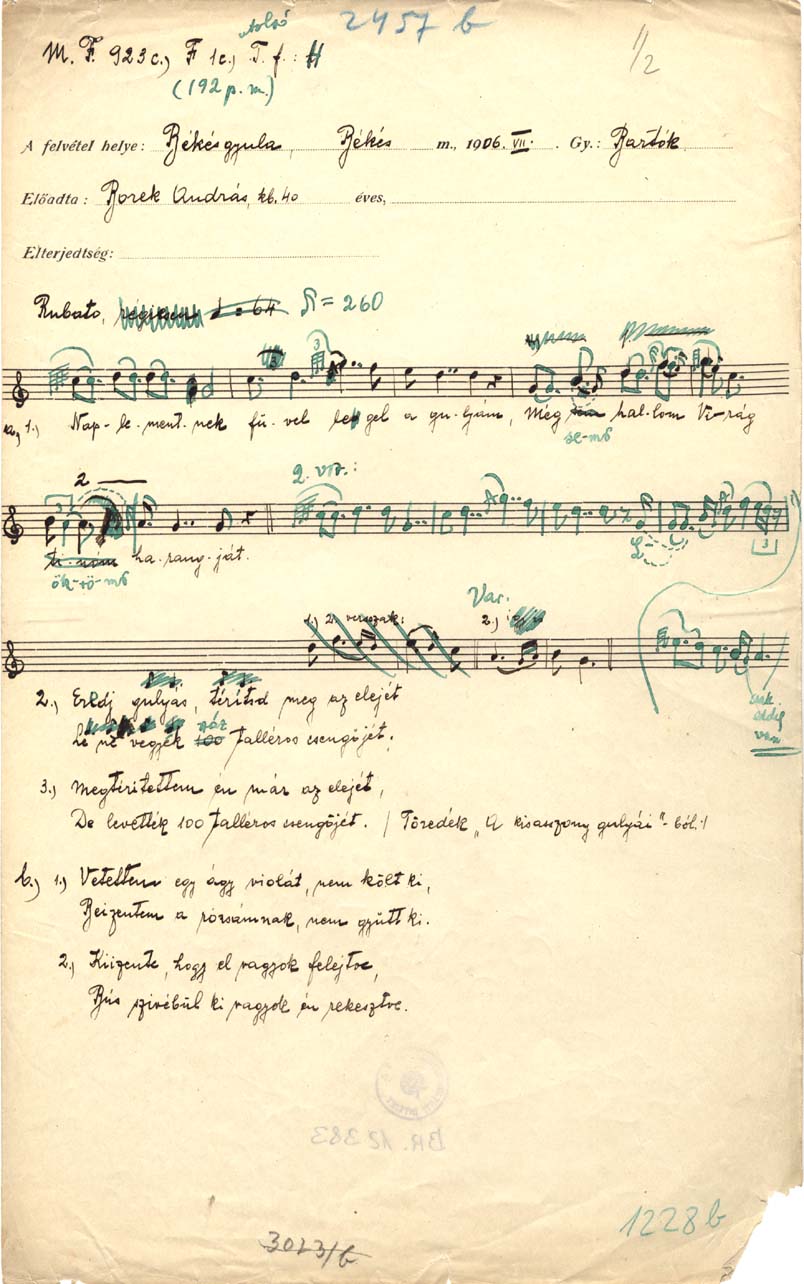 2457 b
utolsó
M. F. 923c.) F 1c.) T. f.: H
1/2
(192 p. m.)
A felvétel helye: Békésgyula, Békés m., 1906. VII. Gy.: Bartók
Előadta: Borek András, kb. 40 éves,
Elterjedtség:
Rubato, ♩ = 64 ♪ = 260
3 3
a.) 1.) Nap-le-ment-nek fú-vel le-gel a gu-lyám, Még hal-lom Vi-rág
se-mö
2
2. vsz.:
3
ha-rang-ját.
ök-rö-mö
3
Var.
1.) 2. versszak: 2.)
2.) Eredj gulyás, térítsd meg az elejét
Le ne vegyék száz talléros csengőjét.
csak
eddig
van
3.) Megtérítettem én már az elejét,
De levették 100 talléros csengőjét. /Töredék "A kisasszony gulyái"-ból./
b.) 1.) Vetettem egy ágy violát, nem költ ki,
Beizentem a rózsámnak, nem gyütt ki.
2.) Kiizente, hogy el vagyok felejtve,
Bús szivébül ki vagyok én rekesztve.
BR. 12383
1228 b
3023/b